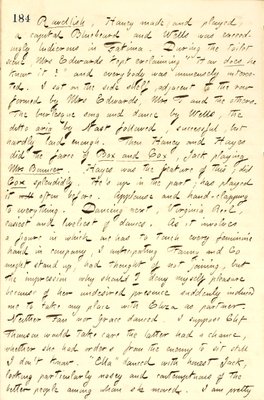 184 Rawdlish, Haney made and played
a capital Bluebeard and Wells was exceed-
ingly ludicrous in Fatima. During the toilet
scene Mrs Edwards kept exclaiming "How does he
know it?" and everybody was immensely interes-
ted. I sat on the side shelf, adjacent to the row
formed by Mrs Edwards, Mrs T and the others.
The burlesque song and dance by Wells, the
ditto aria by Nast followed, successful, but
hardly loud enough. Then Haney and Hayes
did the farce of Box and Cox, Jack playing
Mrs Bouncer. Hayes was the feature of this; did
Cox splendidly. He's up in the part, has played
it often before. Applause and hand-clapping
to everything. Dancing next, Virginia Reel,
easiest and liveliest of dances. As it involves
a figure in which one has to touch every feminine
hand in company, I anticipating Fanny and Co
might stand up, had thought of not joining, but
the impression why should I deny myself pleasure
because of her undesired presence suddenly induced
me to take my place with Eliza as partner.
Neither Fan nor Grace danced. I suppose Clif
Thomson would take care the latter had a chance,
whether she had orders from the enemy to sit still
I don't know. "Ella" danced with honest Jack,
looking particularly assey and contemptuous of the
better people among whom she moved. I am pretty